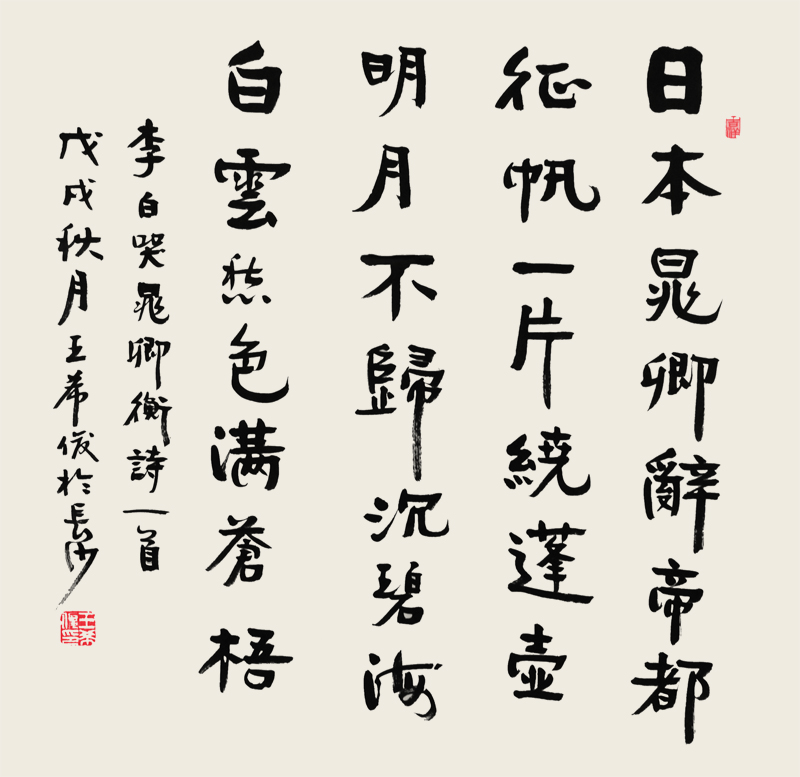 日本晁卿辭帝都
征帆一片繞蓬壺
明月不歸沉碧海
白雲愁色满蒼梧
李白哭晁卿衡詩一首
戊戌秋月王希俊於長沙